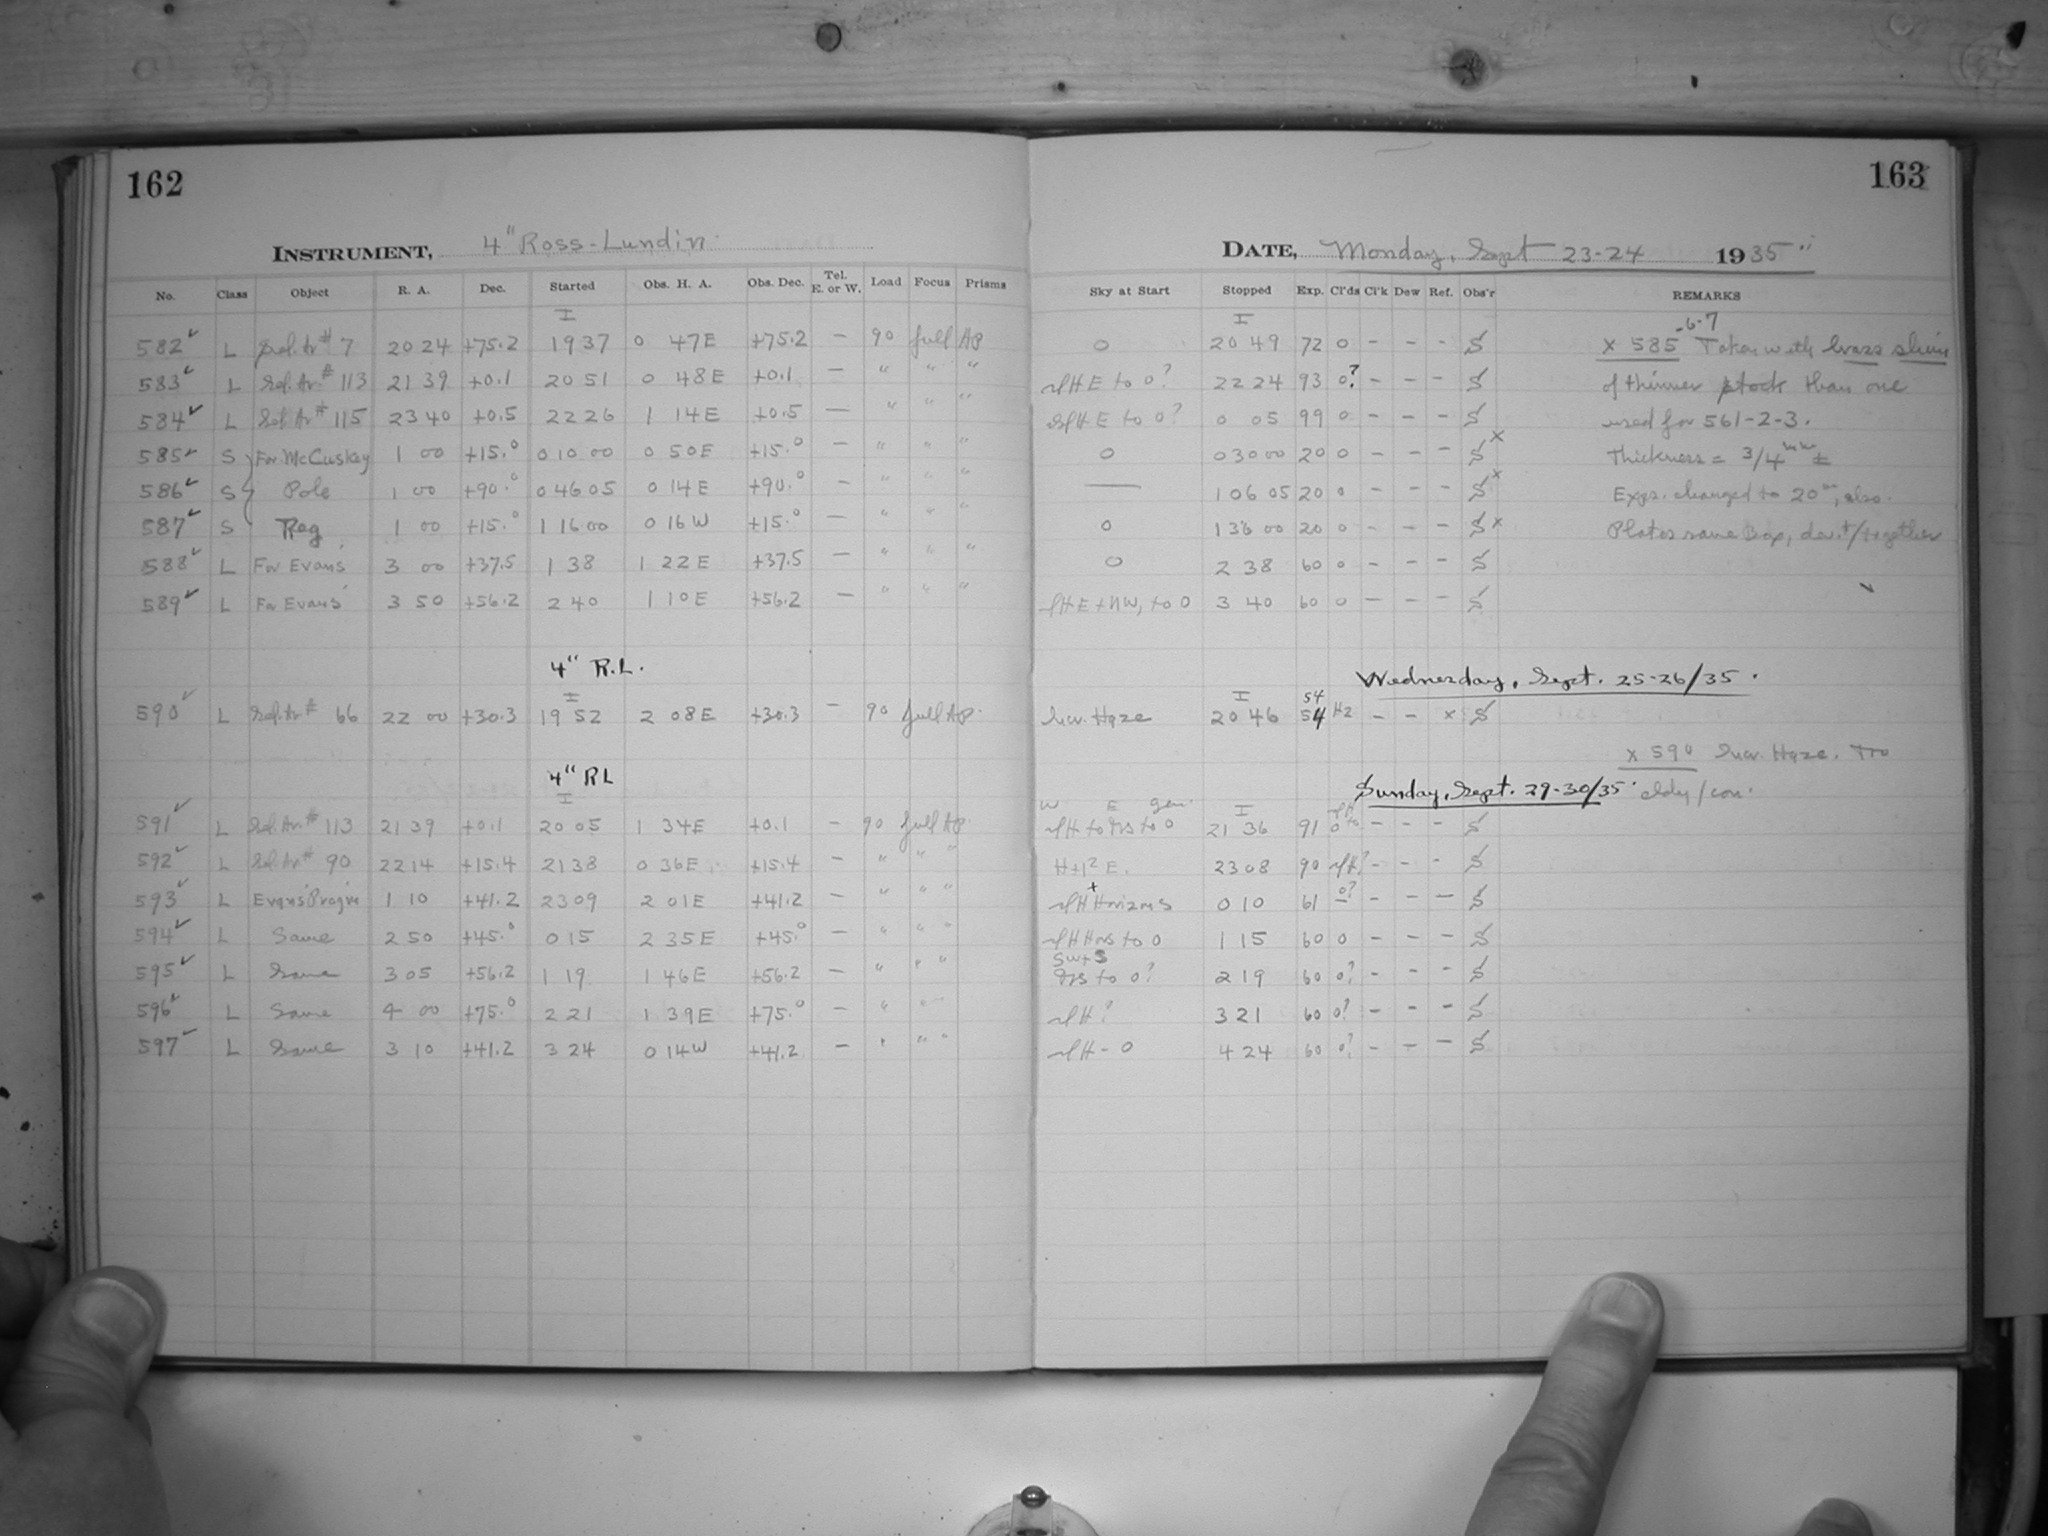 162
163
INSTRUMENT, 4" Ross-Lundin
DATE, Monday, Sept 23-24 1935
No. Class Object R. A. Dec. Started Obs. H. A. Obs. Dec. Tel. E. or W. Load Focus Prisms Sky at Start Stopped Exp. Cl'ds Cl'k Dew Ref. Obs'r REMARKS
I I -6-7
582 ✓ L Sel. Ar # 7 20 24 +75.2 19 37 0 47E +75.2 — 90 full AP 0 20 49 72 0 - - - S x 585 Taken with brass shim
583 ✓ L Sel. Ar # 113 21 39 +0.1 20 51 0 48E +0.1 — " " " H E to 0? 22 24 93 0? - - - S of thinner stock than one
584 ✓ L Sel. Ar # 115 23 40 +0.5 22 26 1 14E +0.5 — " " " H E to 0? 0 05 99 0 - - - S used for 561-2-3.
585 ✓ S For McCuskey 1 00 +15.0 0 10 00 0 50E +15.0 — " " " 0 0 30 00 20 0 - - - S x Thickness = 3/4 mm ±
586 ✓ S Pole 1 00 +90.0 0 46 05 0 14E +90.0 — " " " — 1 06 05 20 0 - - - S x Exps. changed to 20m, also.
587 ✓ S Reg. 1 00 +15.0 1 16 00 0 16W +15.0 — " " " 0 1 36 00 20 0 - - - S x Plates same Box, dev./together
588 ✓ L For Evans 3 00 +37.5 1 38 1 22E +37.5 — " " " 0 2 38 60 0 - - - S
589 ✓ L For Evans 3 50 +56.2 2 40 1 10E +56.2 — " " " H E + NW, to 0 3 40 60 0 - - - S
4" R.L. Wednesday, Sept. 25-26/35.
I I 54
590 ✓ L Sel. Ar # 66 22 00 +30.3 19 52 2 08E +30.3 — 90 full AP. Haze 20 46 54 Hz - - x S
x 590 Haze. Too
4" RL Sunday, Sept. 29-30/35. cldy/con.
I W E gen. I
591 ✓ L Sel. Ar # 113 21 39 +0.1 20 05 1 34E +0.1 — 90 full AP to 0 21 36 91 0 - - - S
592 ✓ L Sel. Ar # 90 22 14 +15.4 21 38 0 36E +15.4 — " " " E. 23 08 90 H? - - - S
593 ✓ L Evans' Prog'm 1 10 +41.2 23 09 2 01E +41.2 — " " " Horizons 0 10 61 0? - - - S
594 ✓ L Same 2 50 +45.0 0 15 2 35E +45.0 — " " " to 0 1 15 60 0 - - - S
SW + S
595 ✓ L Same 3 05 +56.2 1 19 1 46E +56.2 — " " " to 0? 2 19 60 0? - - - S
596 ✓ L Same 4 00 +75.0 2 21 1 39E +75.0 — " " " H? 3 21 60 0? - - - S
597 ✓ L Same 3 10 +41.2 3 24 0 14W +41.2 — " " " H - 0 4 24 60 0? - - - S